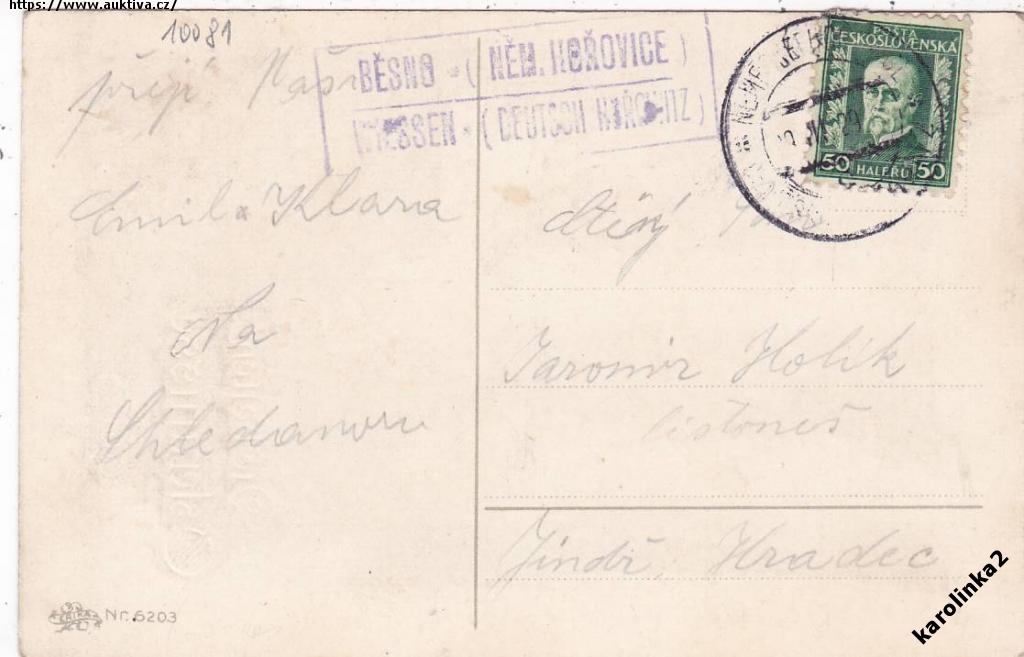 https://www.auktiva.cz/
10081
BĚSNO - ( NĚM. HOŘOVICE )
WIESSEN - ( DEUTSCH HOROWITZ )
POŠTA
ČESKOSLOVENSKA
50 HALÉŘŮ 50
přejí Vaši
Emil a Klara
Na
Shledanou
Ctěný
Jaromír Holík
listonoš
Jindř. Hradec
Nr. 5203
karolinka2